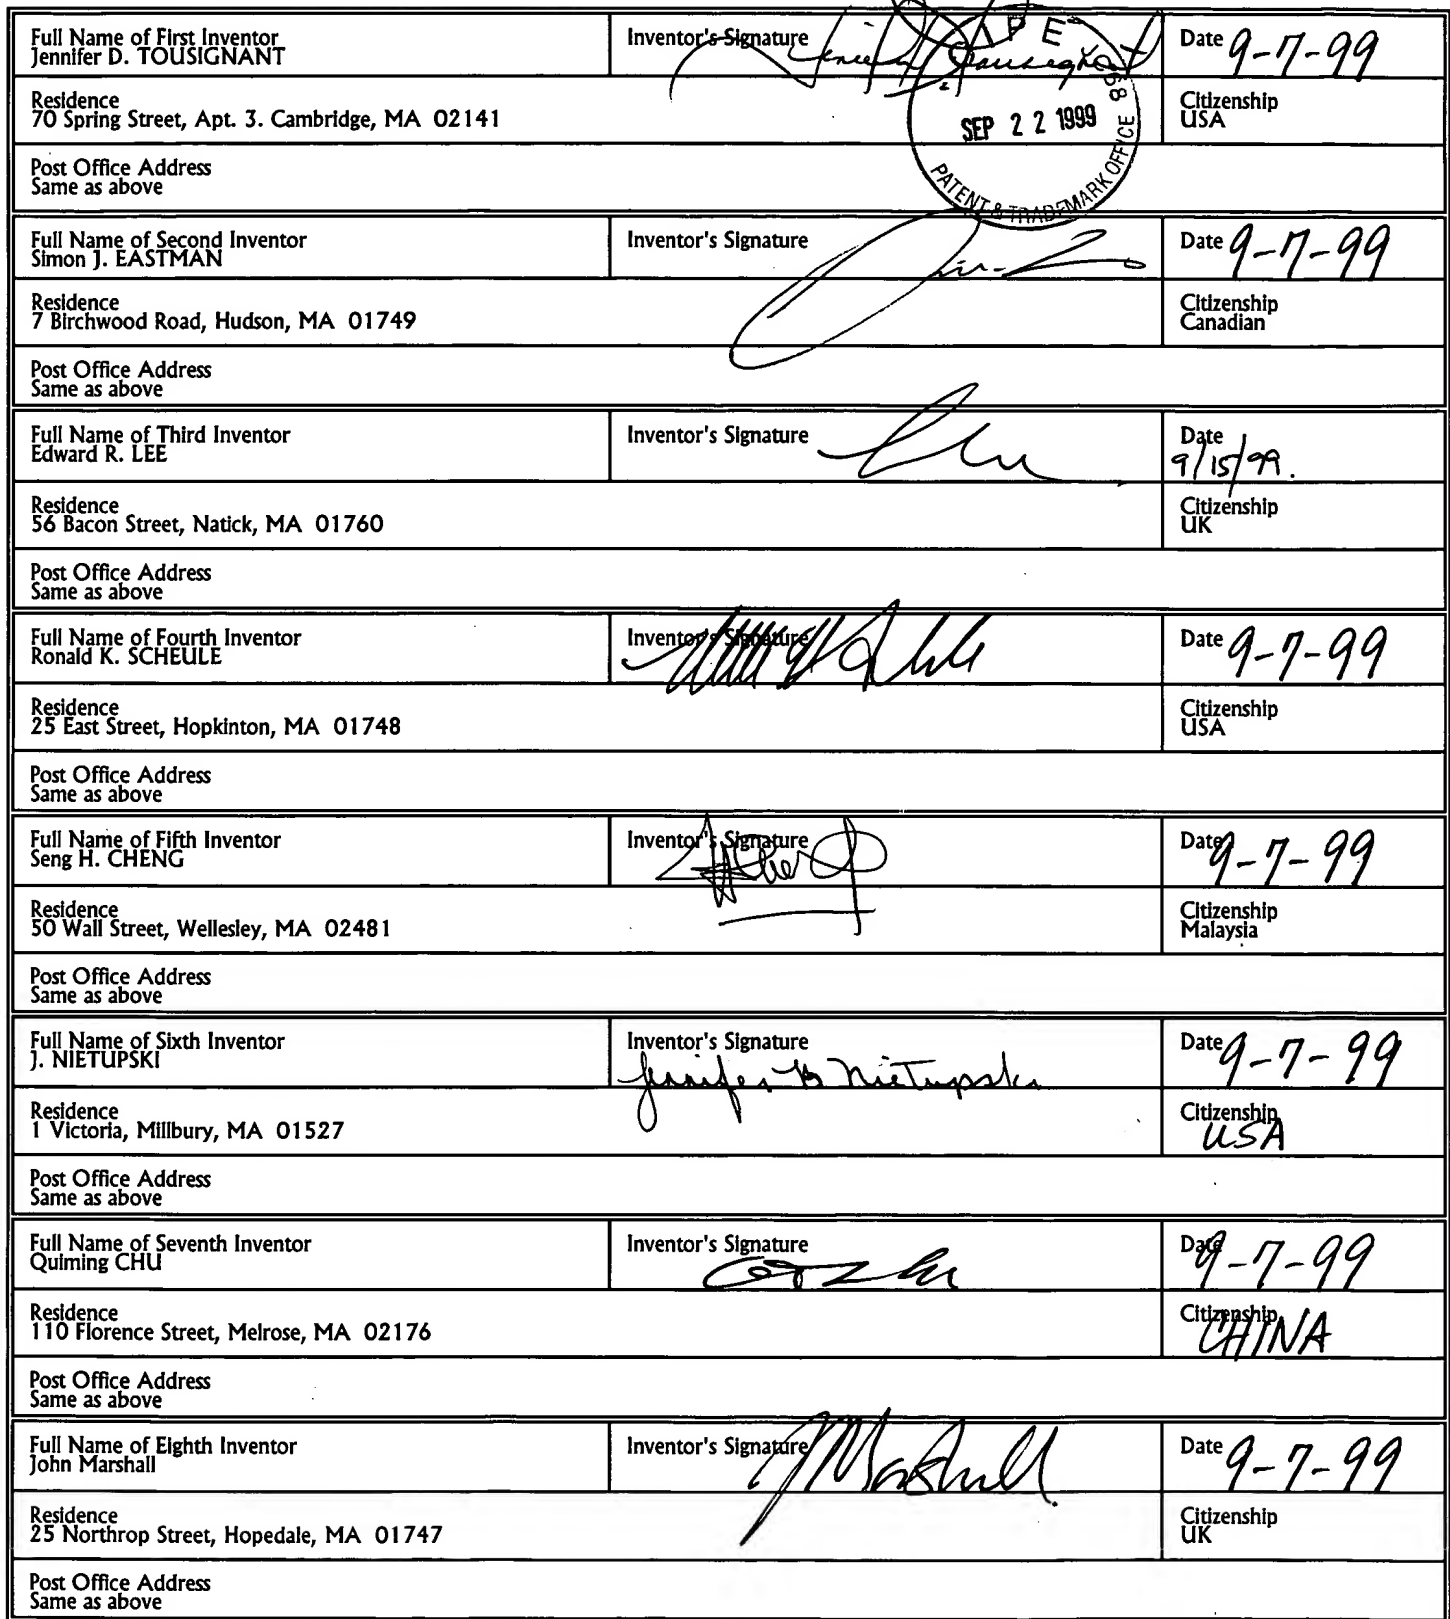 Full Name of First Inventor
Jennifer D. TOUSIGNANT
Inventor's Signature
Date 9-7-99
Residence
70 Spring Street, Apt. 3. Cambridge, MA 02141
Citizenship
USA
Post Office Address
Same as above
SEP 22 1999
PATENT & TRADEMARK OFFICE
Full Name of Second Inventor
Simon J. EASTMAN
Inventor's Signature
Date 9-7-99
Residence
7 Birchwood Road, Hudson, MA 01749
Citizenship
Canadian
Post Office Address
Same as above
Full Name of Third Inventor
Edward R. LEE
Inventor's Signature
Date
9/15/99.
Residence
56 Bacon Street, Natick, MA 01760
Citizenship
UK
Post Office Address
Same as above
Full Name of Fourth Inventor
Ronald K. SCHEULE
Inventor's Signature
Date 9-7-99
Residence
25 East Street, Hopkinton, MA 01748
Citizenship
USA
Post Office Address
Same as above
Full Name of Fifth Inventor
Seng H. CHENG
Inventor's Signature
Date 9-7-99
Residence
50 Wall Street, Wellesley, MA 02481
Citizenship
Malaysia
Post Office Address
Same as above
Full Name of Sixth Inventor
J. NIETUPSKI
Inventor's Signature
Jennifer B Nietupski
Date 9-7-99
Residence
1 Victoria, Millbury, MA 01527
Citizenship
USA
Post Office Address
Same as above
Full Name of Seventh Inventor
Quiming CHU
Inventor's Signature
Date 9-7-99
Residence
110 Florence Street, Melrose, MA 02176
Citizenship
CHINA
Post Office Address
Same as above
Full Name of Eighth Inventor
John Marshall
Inventor's Signature
JMarshall
Date 9-7-99
Residence
25 Northrop Street, Hopedale, MA 01747
Citizenship
UK
Post Office Address
Same as above